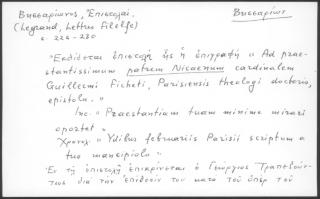 Βησσαρίωνος, Ἐπιστολαί. Βησσαρίων
(Legrand, Lettres Filelfe)
σ. 226-230
"Ἐκδίδεται ἐπιστολὴ ἧς ἡ ἐπιγραφὴ " Ad prae-
stantissimum patrem Nicaenum cardinalem
Guillermi Ficheti, Parisiensis theologi doctoris,
epistola. "
Inc. " Praestantiam tuam minime mirari
oportet "
Χρονολ. " Ydibus februariis Parisii scriptum a
tuo mancipiolo "
Ἐν τῇ ἐπιστολῇ ἐπικρίνεται ὁ Γεώργιος Τραπεζούν-
τιος διὰ τὴν ἐπίθεσίν του κατὰ τοῦ ὑπὲρ τοῦ